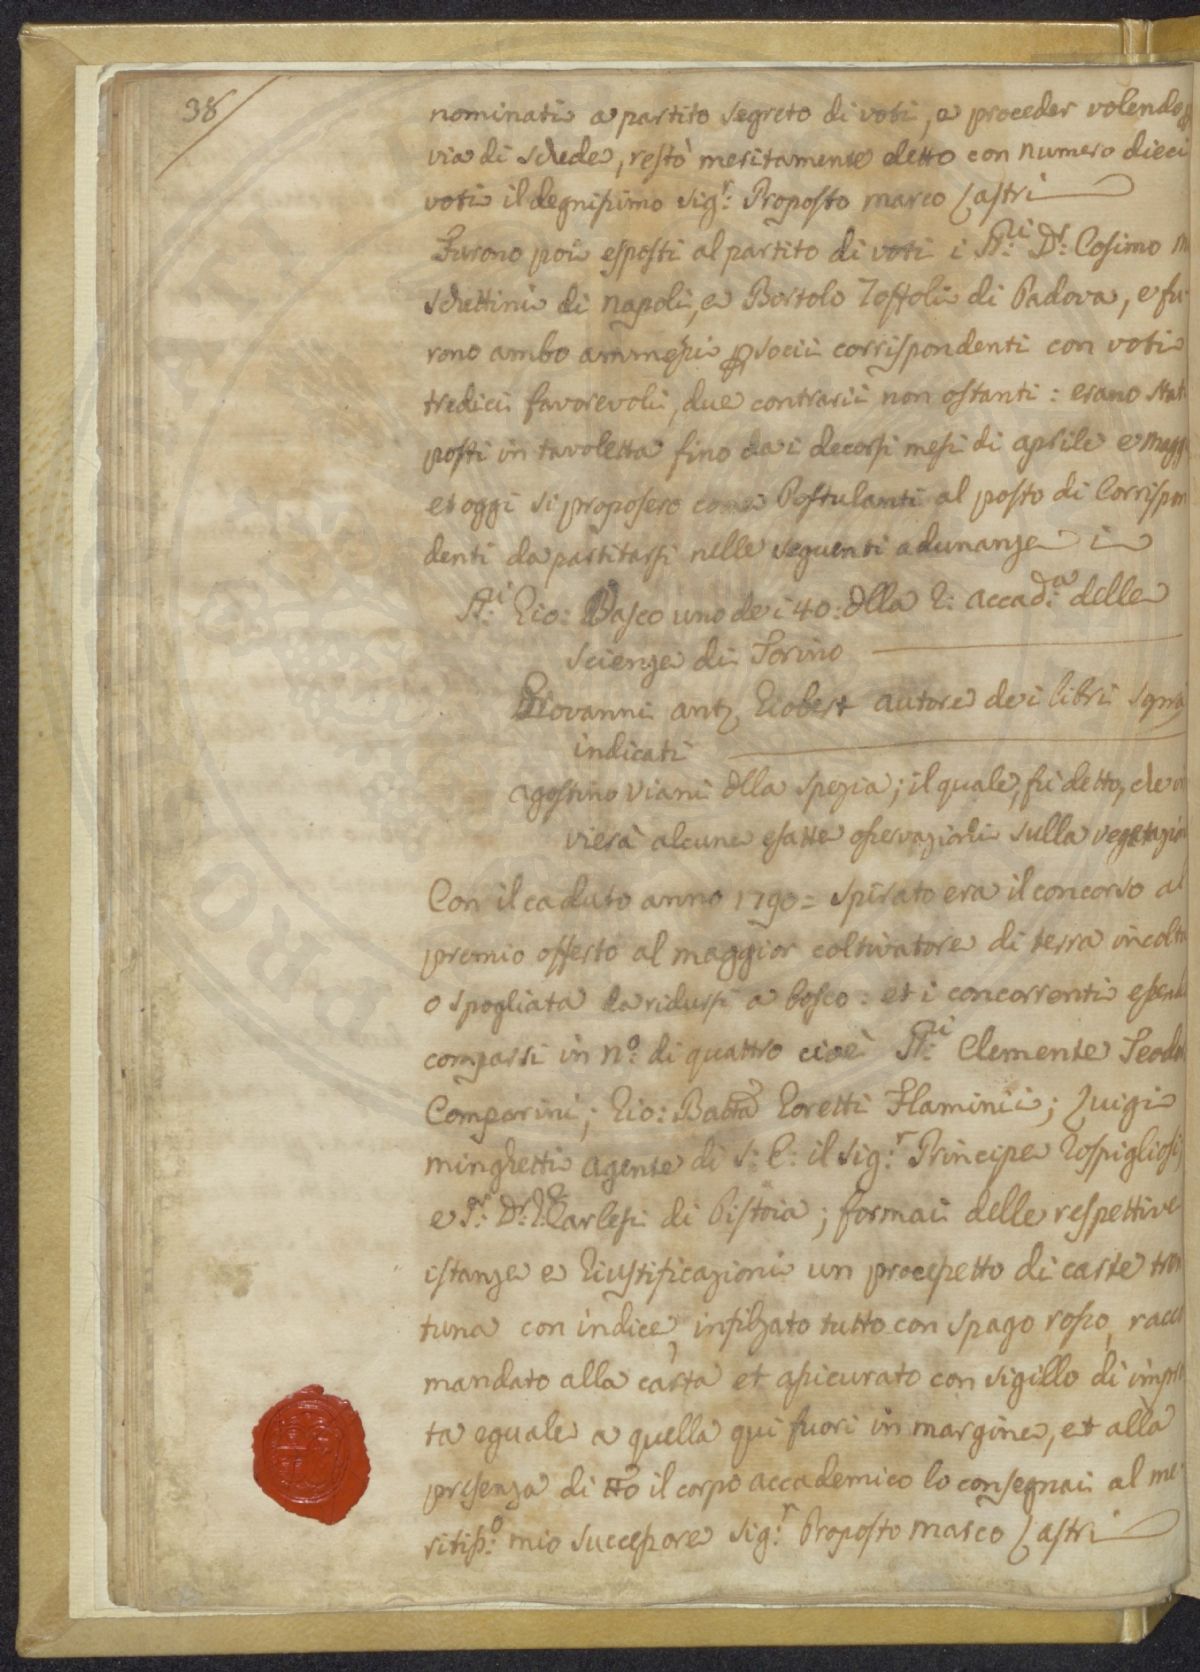 38
nominati a partito segreto di voti, e proceder volendo
via di schede, restò meritamente eletto con numero dieci
voti il degnissimo Sig.r Proposto Marco Lastri
Furono poi esposti al partito di voti i SS.ri Dr. Cosimo M
Schettini di Napoli, e Bortolo Toffoli di Padova, e fu-
rono ambo ammessi p socii corrispondenti con voti
tredici favorevoli, due contrarii non ostanti: erano stat
posti in tavoletta fino da i decorsi mesi di aprile e magg
et oggi si proposero come Postulanti al posto di Corrispon
denti da partitarsi nelle seguenti adunanze i
SS.ri Gio: Basco uno de i 40: dlla R: accad.a delle
scienze di Torino
Giovanni ant. Giobert autore de i libri sopra
indicati
agostino Viani dlla Spezia; il quale, fu detto, che
vierà alcune esatte osservazioni sulla vegetazion
Con il caduto anno 1790= spirato era il concorso al
premio offerto al maggior coltivatore di terra incolta
o spogliata da ridursi a bosco: et i concorrenti essendo
comparsi in n.o di quattro cioè SS.ri Clemente Teodo
Comparini; Gio: Batta Loretti Flaminii; Luigi
minghetti agente di S: E: il Sig.r Principe Rospigliosi,
e Dr. Carlesi di Pistoia; formai delle respettive
istanze e Giustificazioni un processetto di carte tren
tuna con indice, infilzato tutto con spago rosso, racco
mandato alla carta et assicurato con sigillo di impron
ta eguale a quella qui fuori in margine, et alla
presenza di tto il corpo accademico lo consegnai al me-
ritiss.o mio successore Sig.r Proposto Marco Lastri